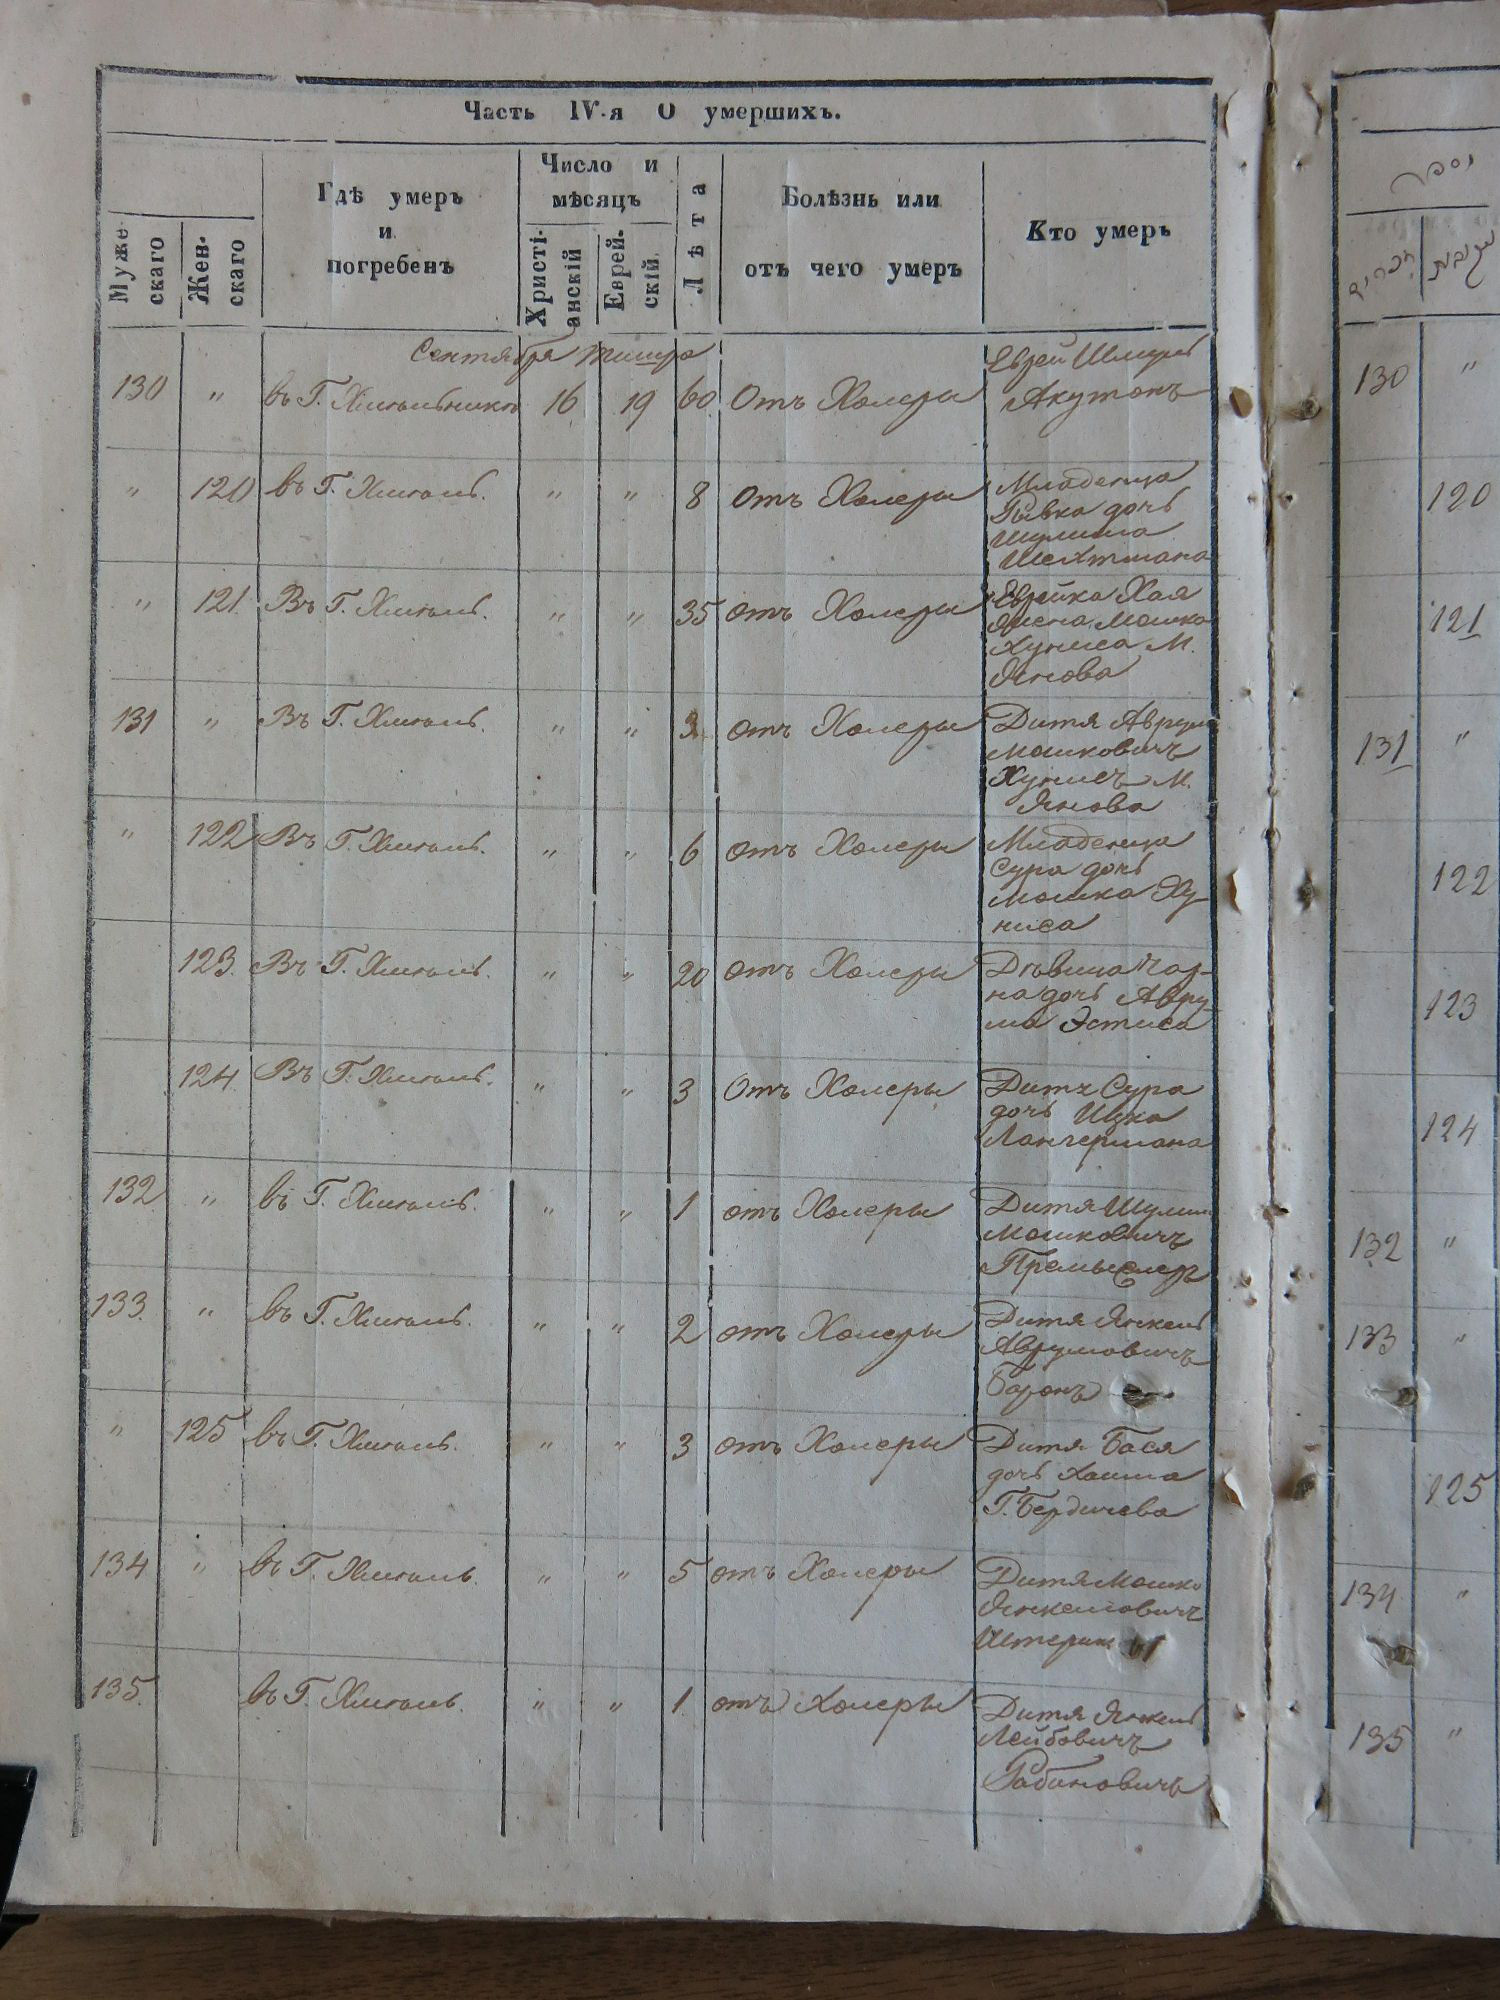 Часть IV-я О умершихъ.
Муже-скаго
Жен-скаго
Гдѣ умеръ
и
погребенъ
Число и
мѣсяцъ
Христі-анскій
Еврей-скій
Лѣта
Болѣзнь или
отъ чего умеръ
Кто умеръ
Сентября Тишра
Еврей Шмуль
130 " въ Г. Хмѣльникѣ 16 19 60 Отъ Холеры
" 120 въ Г. Хмѣль. " " 8 отъ Холеры Младенца
Рывка дочь
Шулима
Шехтмана
" 121 Въ Г. Хмѣль. " " 35 отъ Холеры Еврейка Хая
жена Мошка
Хуниса М.
Янова
131 " Въ Г. Хмѣль. " " 3 отъ Холеры Дитя Аврум
Мошковичъ
Хунисъ М.
Янова
" 122 Въ Г. Хмѣль. " " 6 отъ Холеры Младенца
Сура дочь
Мошка Ху-
ниса
123 Въ Г. Хмѣль. " " 20 отъ Холеры Дѣвица Чар-
на дочь Авру-
ма Эстиса
124 Въ Г. Хмѣль. " " 3 Отъ Холеры Дитя Сура
дочь Ицка
Лангермана
132 " въ Г. Хмѣль. " " 1 отъ Холеры Дитя Шулим
Мошковичъ
133 " въ Г. Хмѣль. " " 2 отъ Холеры Дитя Янкель
Аврумовичъ
Баронъ
" 125 въ Г. Хмѣль. " " 3 отъ Холеры Дитя Бася
дочь Хаима
Г. Бердичева
134 " въ Г. Хмѣль. " " 5 отъ Холеры Дитя Мошко
Янкелевичъ
135. въ Г. Хмѣль. " " 1 отъ Холеры Дитя Янкель
Лейбовичъ
Рабиновичъ
130 "
120
121
131 "
122
123
124
132 "
133 "
125
134 "
135 "